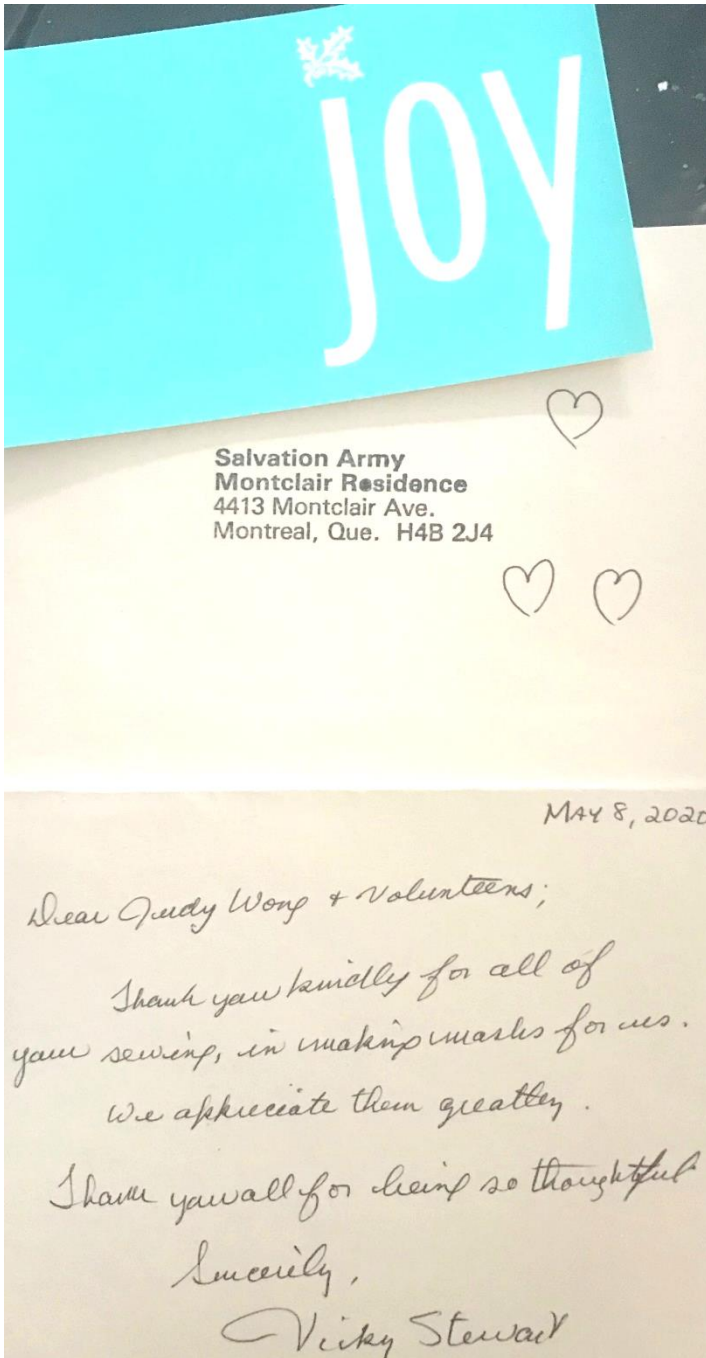 joy
Salvation Army
Montclair Residence
4413 Montclair Ave.
Montreal, Que. H4B 2J4
MAY 8, 2020
Dear Judy Wong + Volunteers;
Thank you kindly for all of
your sewing, in making masks for us.
We appreciate them greatley.
Thank you all for being so thoughtful
Sincerily,
Vicky Stewart